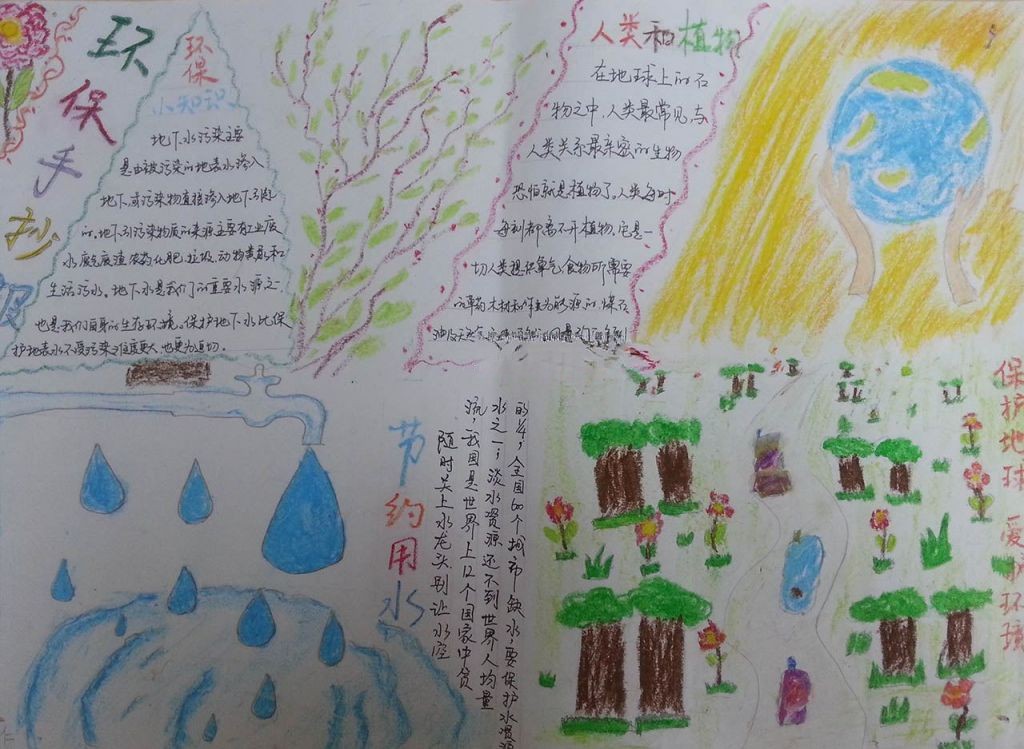 环保手抄报
环保
小知识
地下水污染主要
是由被污染的地表水渗入
地下,或污染物直接渗入地下引起
的,地下水污染物质的来源主要有工业废
水废气废渣农药化肥,垃圾,动物粪尿和
生活污水。地下水是我们的重要水源之一,
也是我们自身的生存环境。保护地下水比保
护地表水不受污染难度更大也更为迫切。
人类和植物
在地球上的石
物之中,人类最常见与
人类关系最亲密的生物
恐怕就是植物了。人类每时
每刻都离不开植物,它是一
切人类提供氧气,食物所需要
的草药木材和作为能源的煤石
油及天然气
节约用水
随时关上水龙头,别让水空
流,我国是世界上12个国家中贫
水之一,淡水资源还不到世界人均量
的1/4,全国600个城市缺水,要保护水资源
保护地球 爱护环境